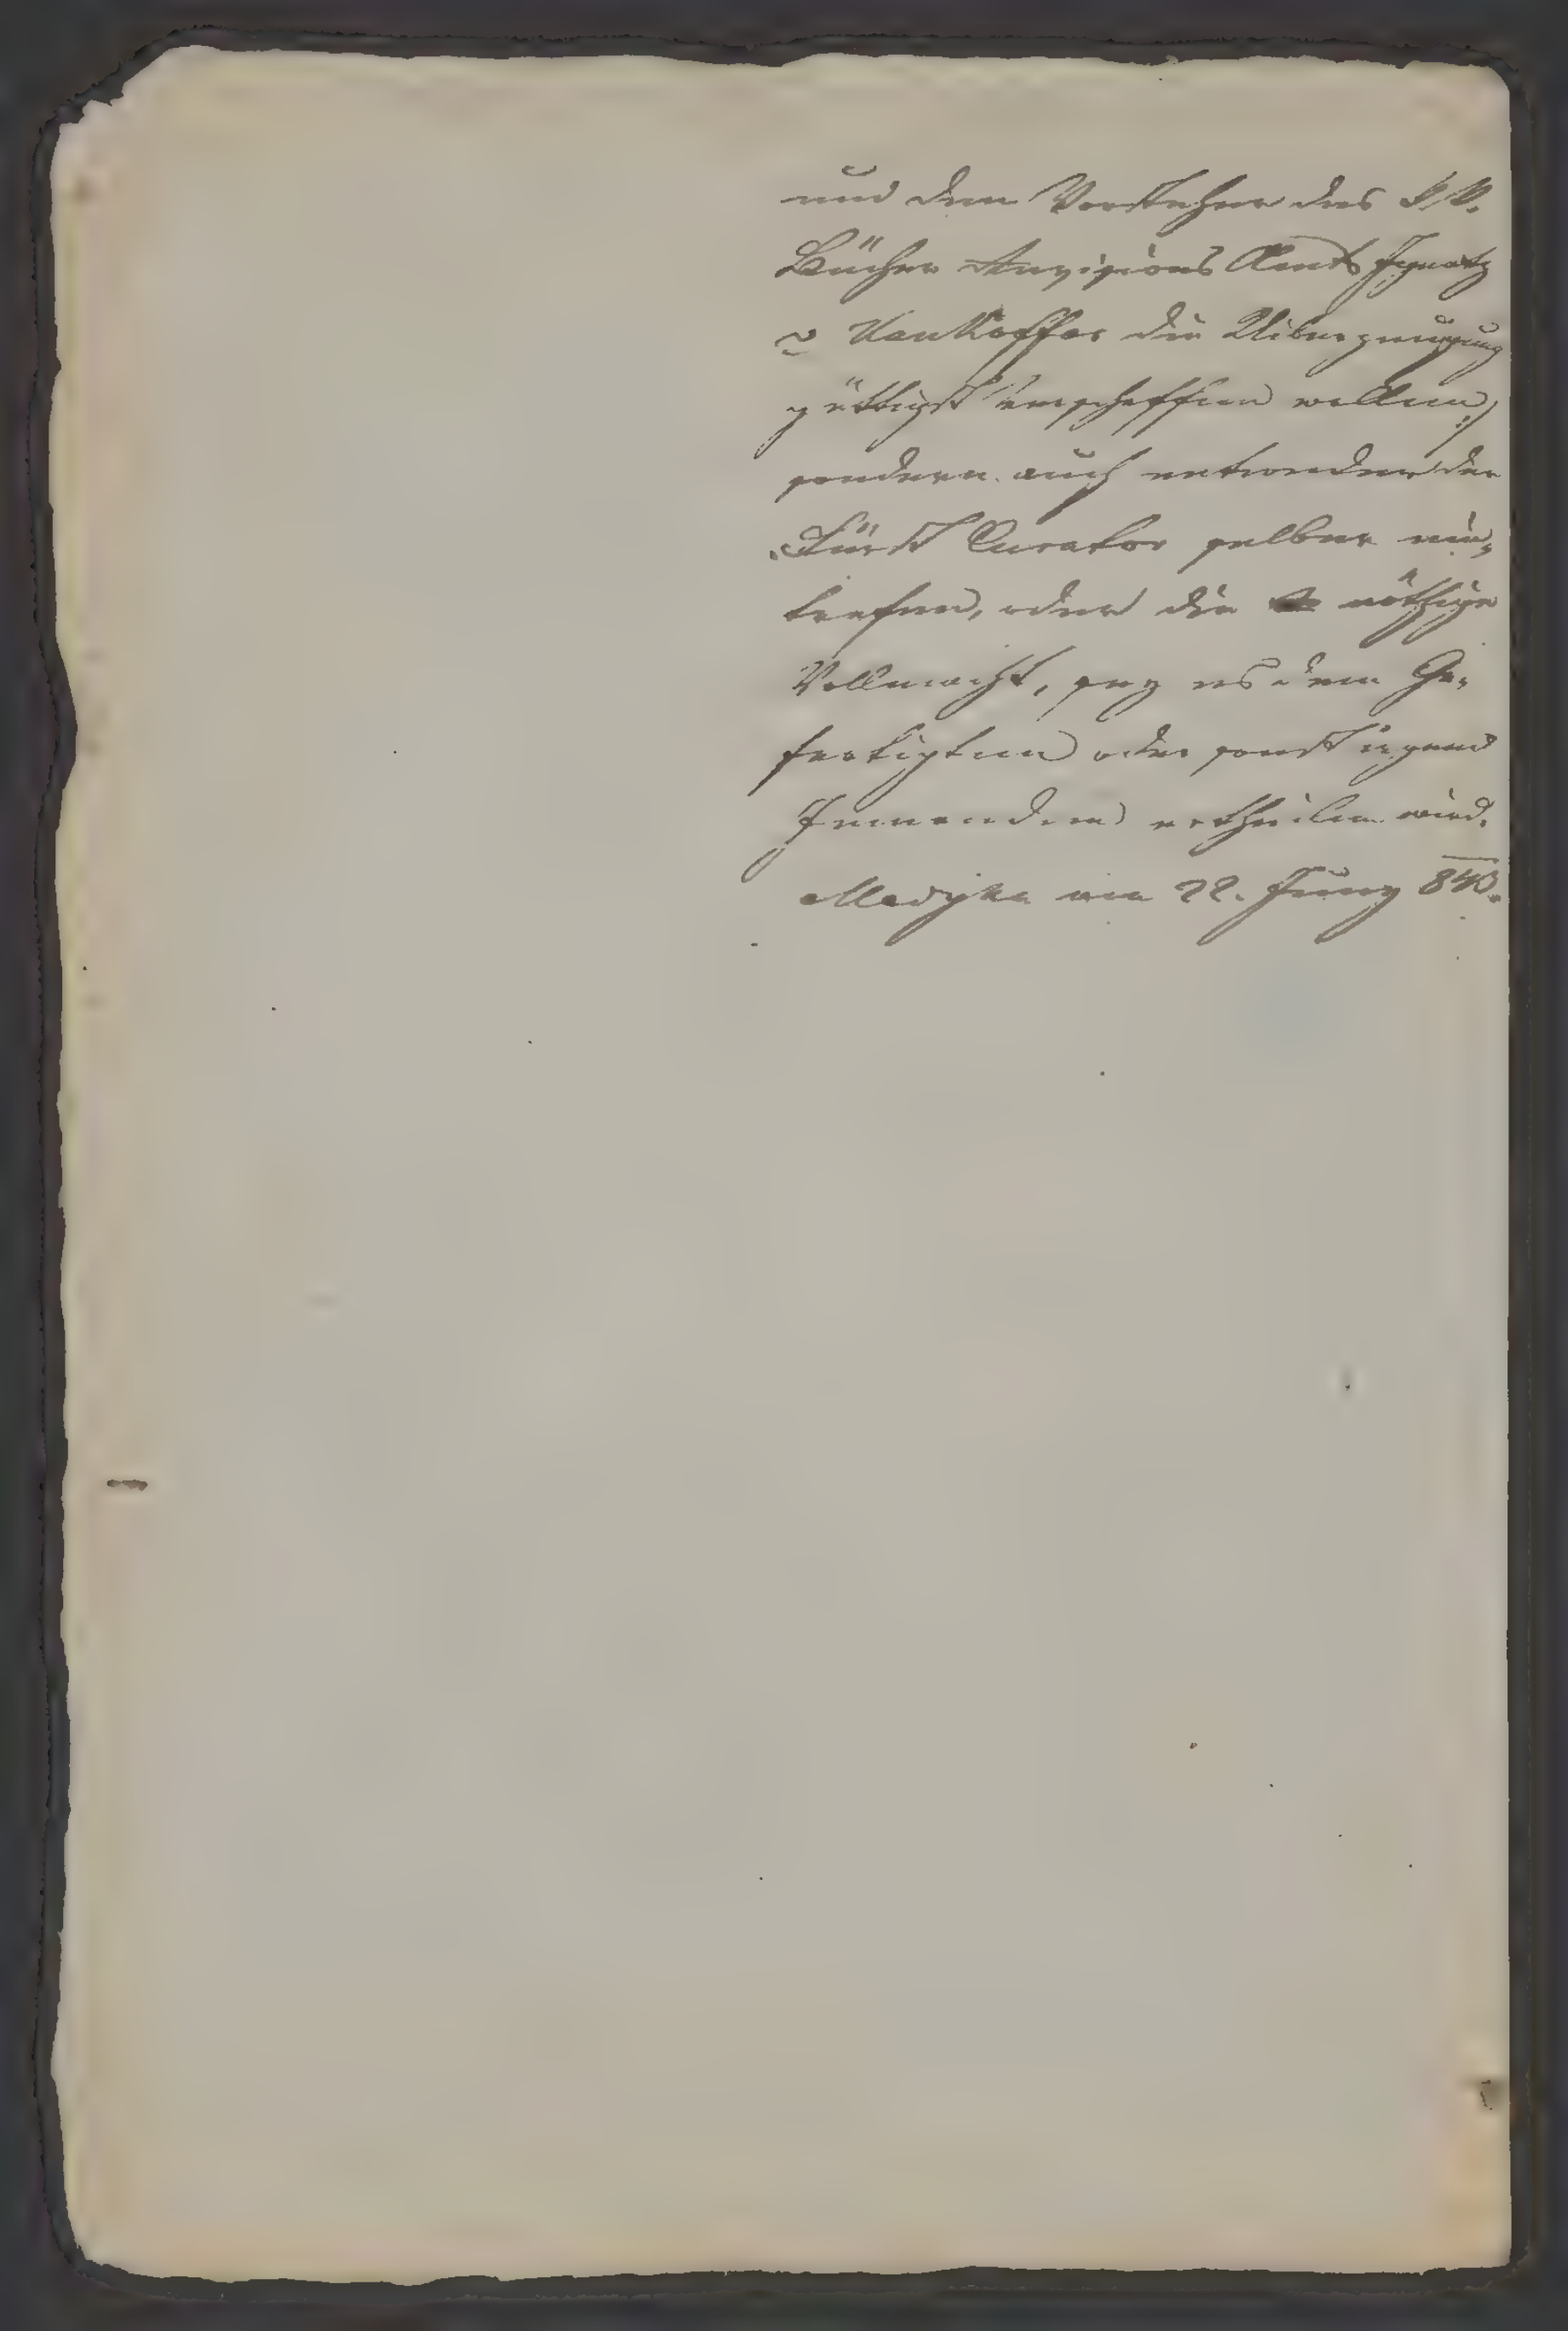 und dem Vorsteher des K. K.
Bücher Revisions Amts Ignatz
v Hankoffer die Uiberzeugung
gütigst verschaffen wollen,)
sondern auch entweder der
Fürst Curator selber ein„
treffen, oder die nöthige
Vollmacht, sey es dem Ge„
fertigten oder sonst irgend
Jemandem ertheilen wird.
Medyka am 22. Juny 840.